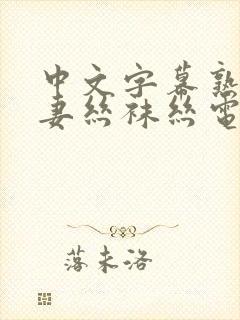 中文字幕熟
妻丝袜丝電
落未洛